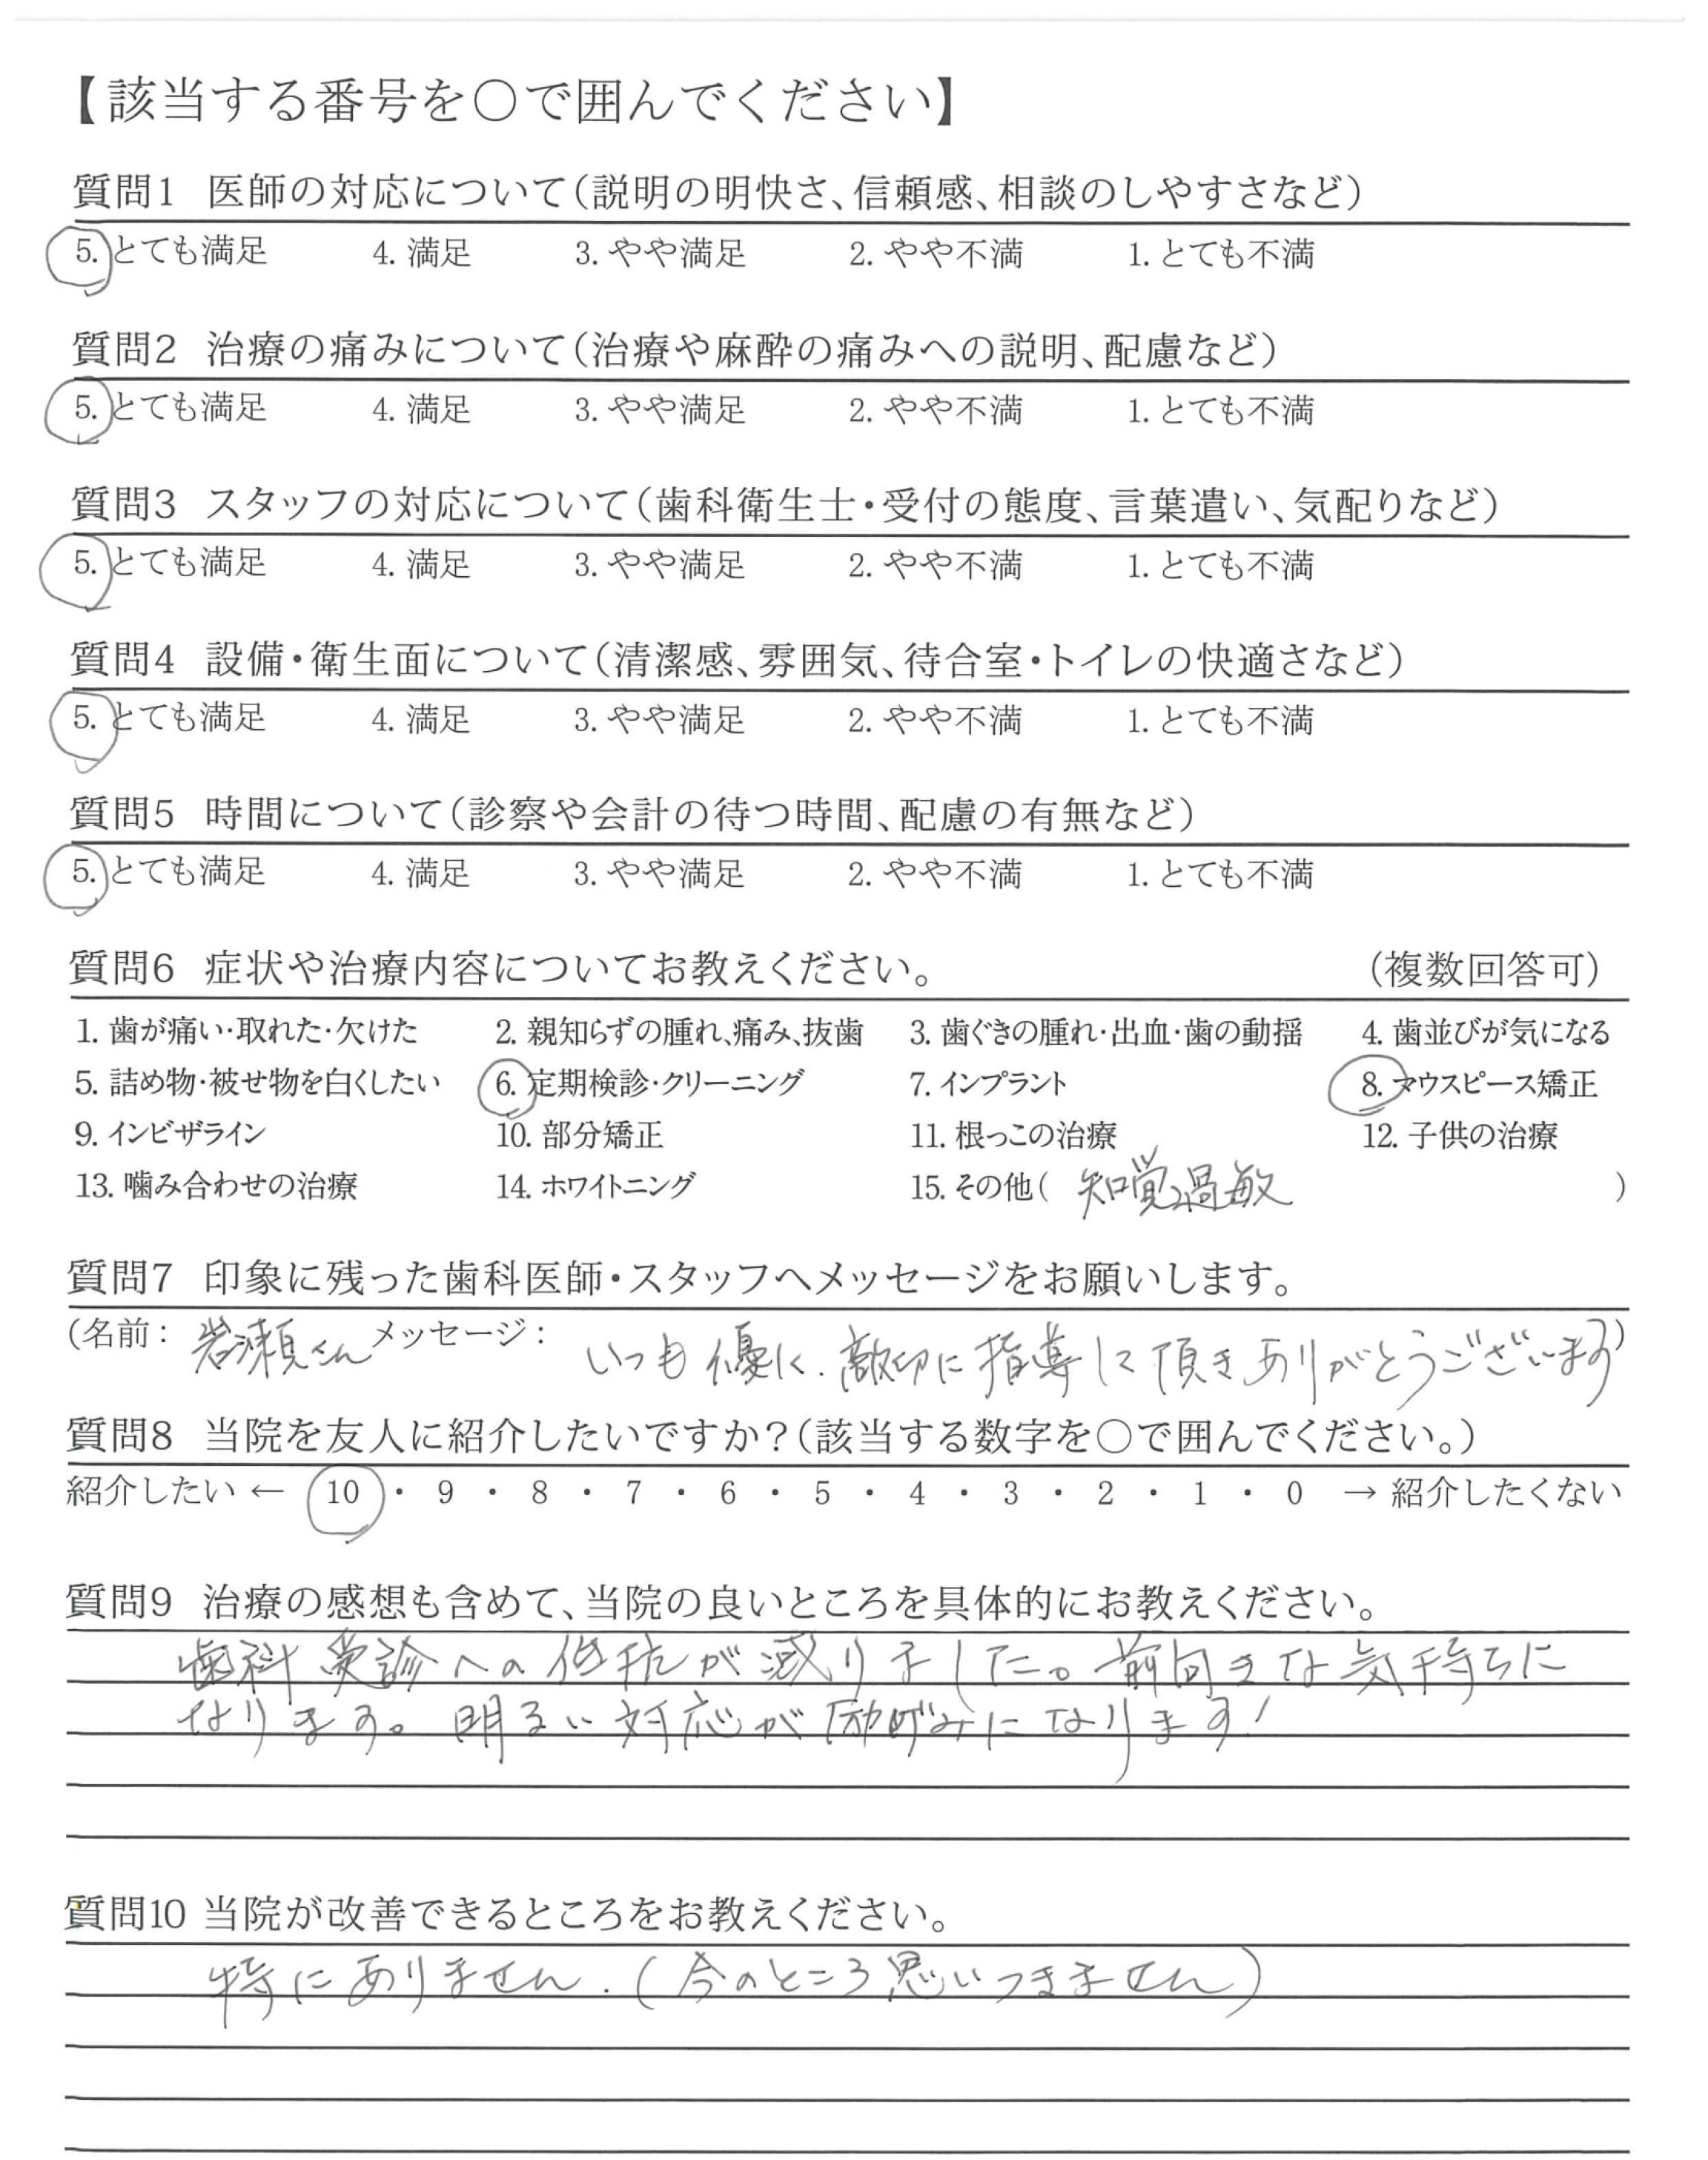 【該当する番号を〇で囲んでください】
質問1 医師の対応について(説明の明快さ、信頼感、相談のしやすさなど)
5. とても満足 4. 満足 3. やや満足 2. やや不満 1. とても不満
質問2 治療の痛みについて(治療や麻酔の痛みへの説明、配慮など)
5. とても満足 4. 満足 3. やや満足 2. やや不満 1. とても不満
質問3 スタッフの対応について(歯科衛生士・受付の態度、言葉遣い、気配りなど)
5. とても満足 4. 満足 3. やや満足 2. やや不満 1. とても不満
質問4 設備・衛生面について(清潔感、雰囲気、待合室・トイレの快適さなど)
5. とても満足 4. 満足 3. やや満足 2. やや不満 1. とても不満
質問5 時間について(診察や会計の待つ時間、配慮の有無など)
5. とても満足 4. 満足 3. やや満足 2. やや不満 1. とても不満
質問6 症状や治療内容についてお教えください。 (複数回答可)
1. 歯が痛い・取れた・欠けた 2. 親知らずの腫れ、痛み、抜歯 3. 歯ぐきの腫れ・出血・歯の動揺 4. 歯並びが気になる
5. 詰め物・被せ物を白くしたい 6. 定期検診・クリーニング 7. インプラント 8. マウスピース矯正
9. インビザライン 10. 部分矯正 11. 根っこの治療 12. 子供の治療
13. 噛み合わせの治療 14. ホワイトニング 15. その他( 知覚過敏 )
質問7 印象に残った歯科医師・スタッフへメッセージをお願いします。
(名前: 岩瀬さん メッセージ: いつも優しく、適切に指導して頂きありがとうございます)
質問8 当院を友人に紹介したいですか?(該当する数字を〇で囲んでください。)
紹介したい ← 10 ・ 9 ・ 8 ・ 7 ・ 6 ・ 5 ・ 4 ・ 3 ・ 2 ・ 1 ・ 0 → 紹介したくない
質問9 治療の感想も含めて、当院の良いところを具体的にお教えください。
歯科受診への低抗が減りました。前向きな気持ちに
なります。明るい対応が励げみになります!
質問10 当院が改善できるところをお教えください。
特にありません.(今のところ思いつきません)